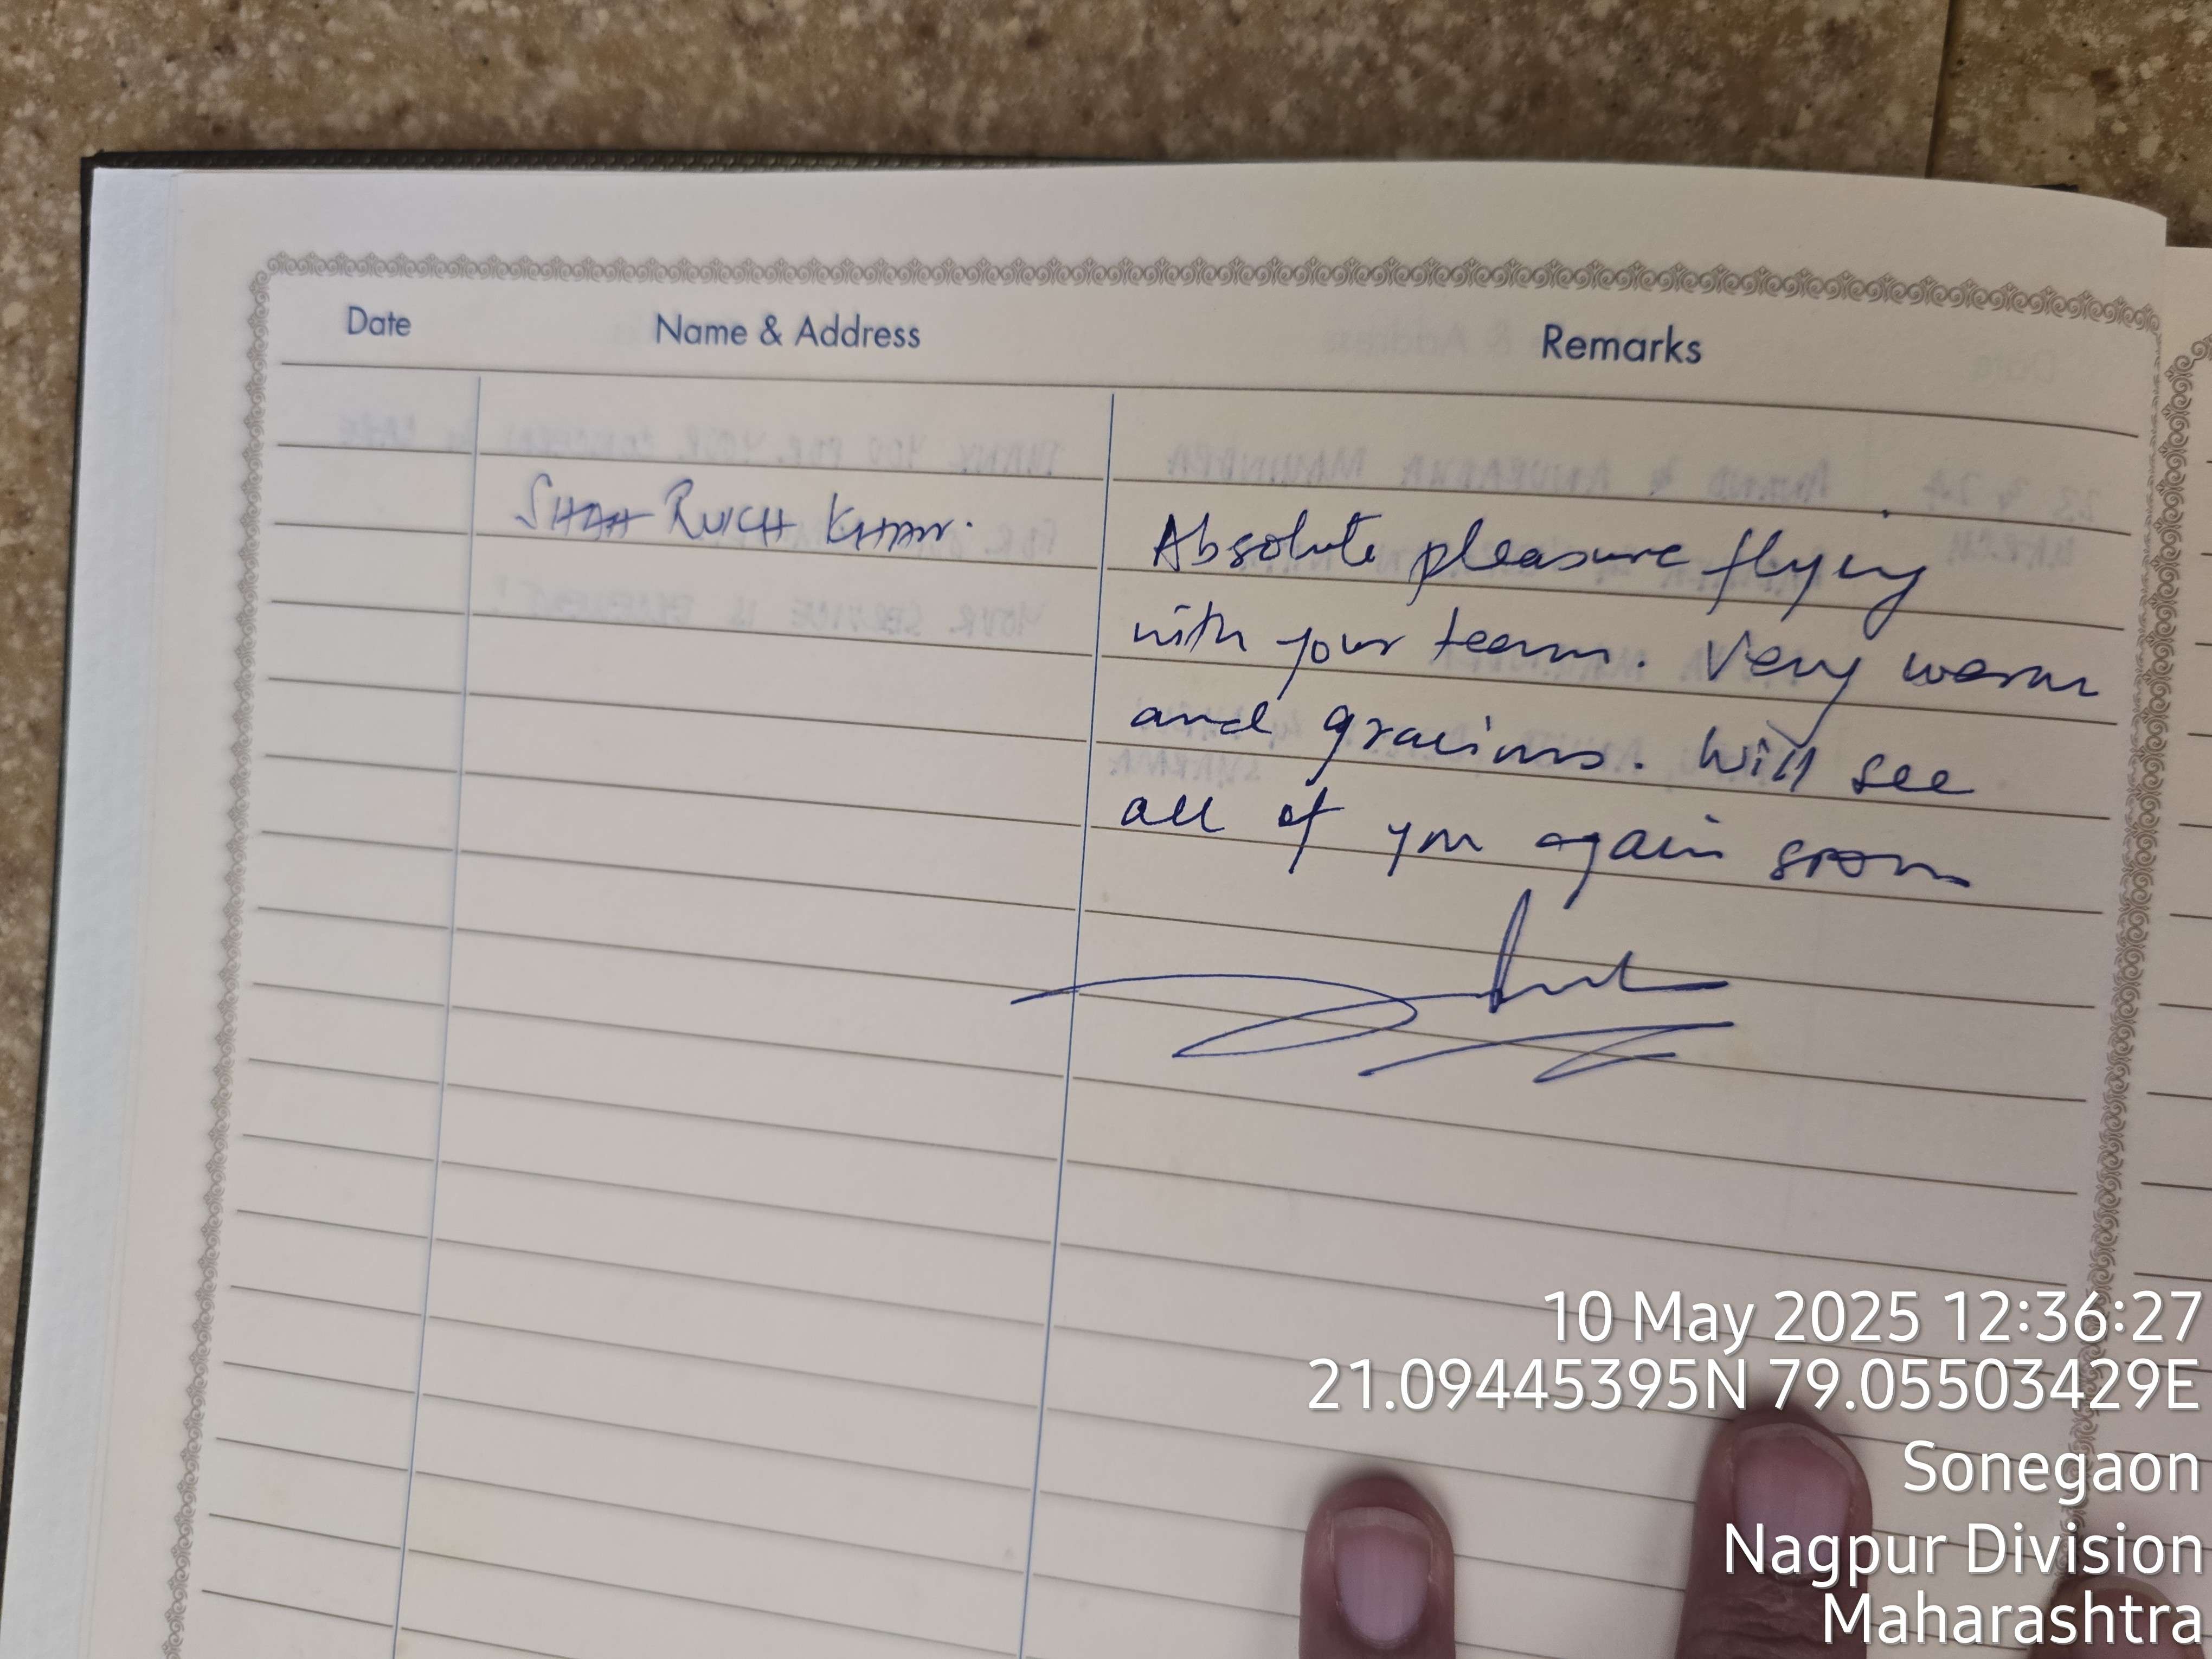 Date Name & Address Remarks
SHAH RUKH KHAN.
Absolute pleasure flying
with your team. Very warm
and gracious. Will see
all of you again soon
10 May 2025 12:36:27
21.09445395N 79.05503429E
Sonegaon
Nagpur Division
Maharashtra